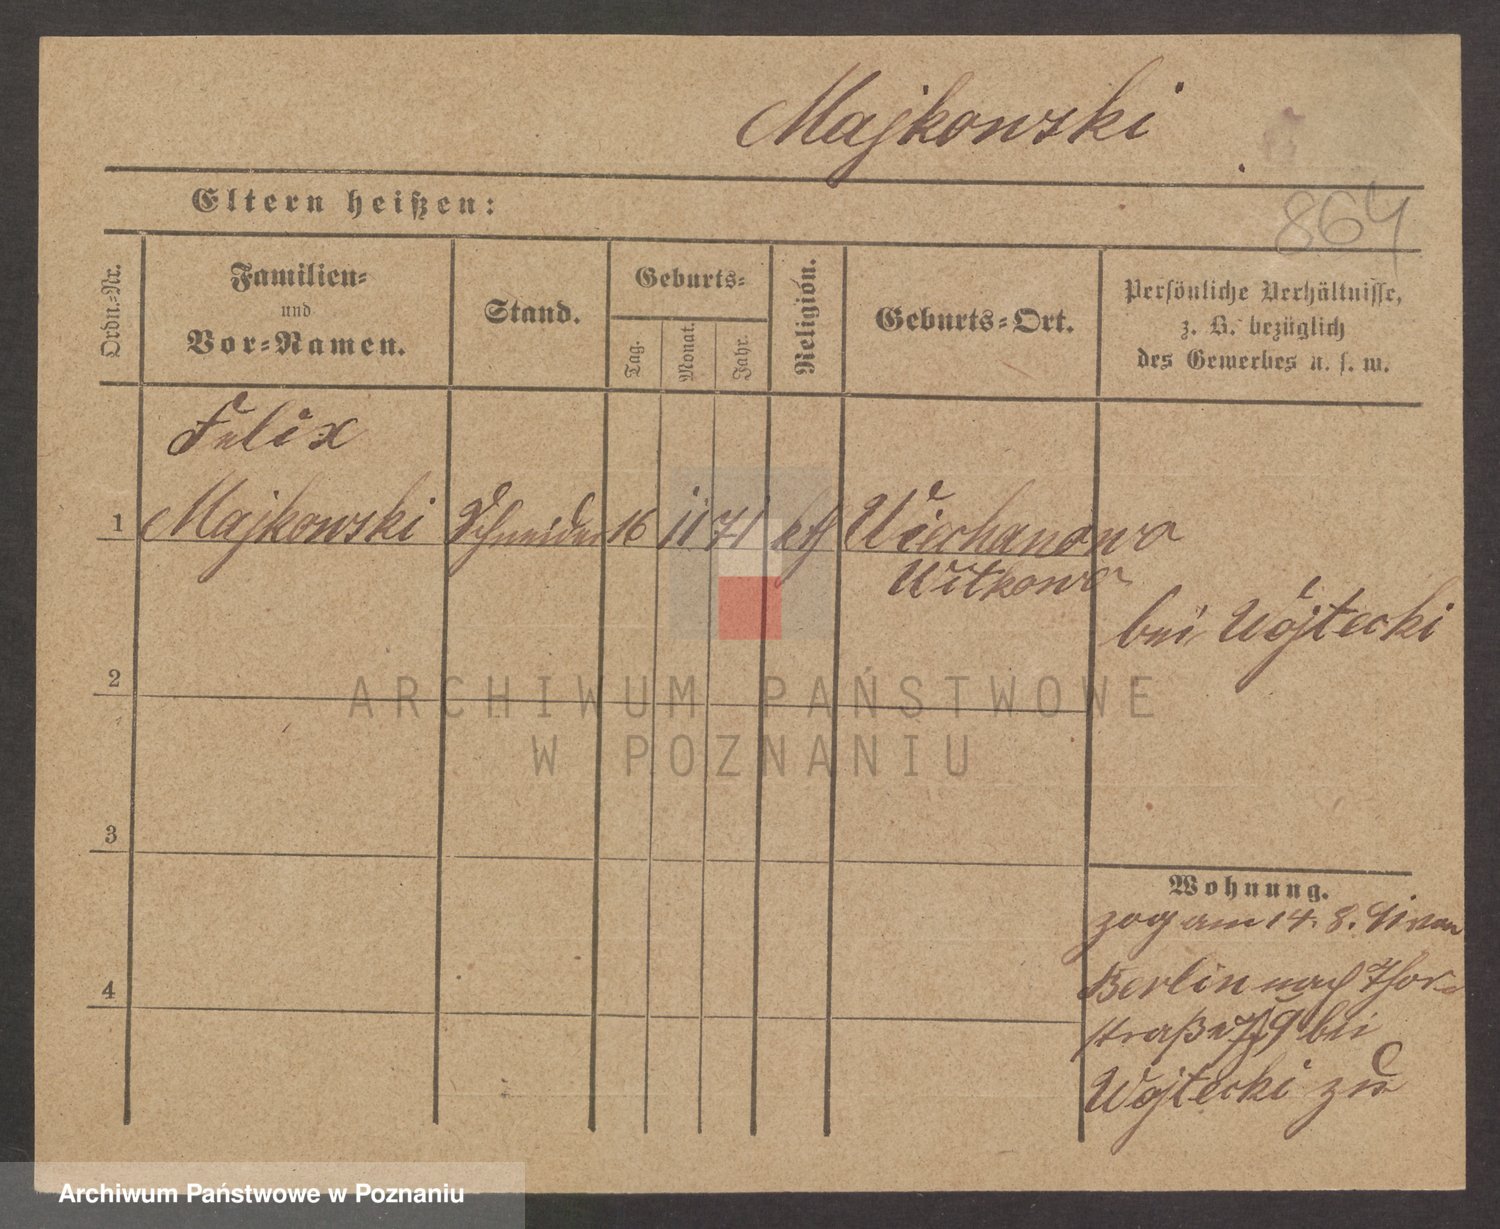 Majkowski
864
Eltern heißen:
Ordn.-Nr.
Familien-
und
Vor-Namen.
Stand.
Geburts-
Tag.
Monat.
Jahr.
Religion.
Geburts-Ort.
Persönliche Verhältnisse,
z. B. bezüglich
des Gewerbes u. s. w.
Felix
1 Majkowski Schneider 16 11 71 kth Wiechanowo
Witkowo
bei Wojtecki
2
3
4
Wohnung.
zog am 14. 8. 91 von
Berlin nach Thor-
straße 9 bei
Wojtecki zu
ARCHIWUM PAŃSTWOWE
W POZNANIU
Archiwum Państwowe w Poznaniu